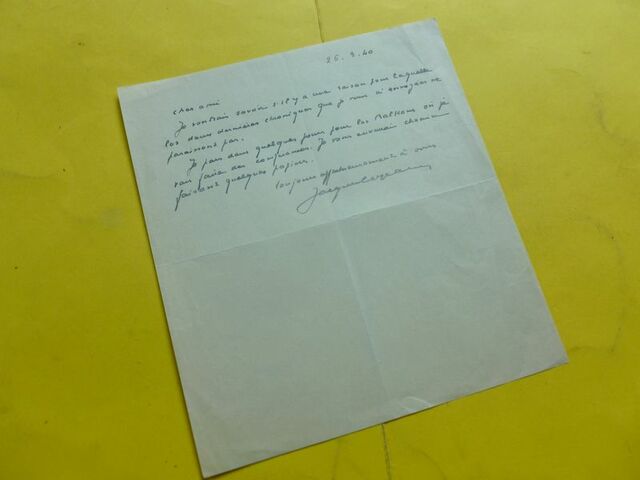 26.3.40
cher ami
Je voudrais savoir s'il y a une raison pour laquelle
les deux dernières chroniques que je vous ai envoyées ne
paraissent pas.
Je pars dans quelques jours pour les Balkans où je
vais faire des conférences. Je vous enverrai chemin
faisant quelques papiers.
toujours affectueusement à vous
Jacques